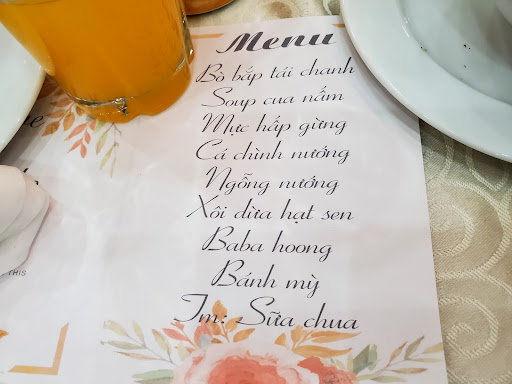 Menu
Bò bắp tái chanh
Soup cua nấm
Mực hấp gừng
Cá chình nướng
Ngỗng nướng
Xôi dừa hạt sen
Baba hoong
Bánh mỳ
Tm: Sữa chua
THIS